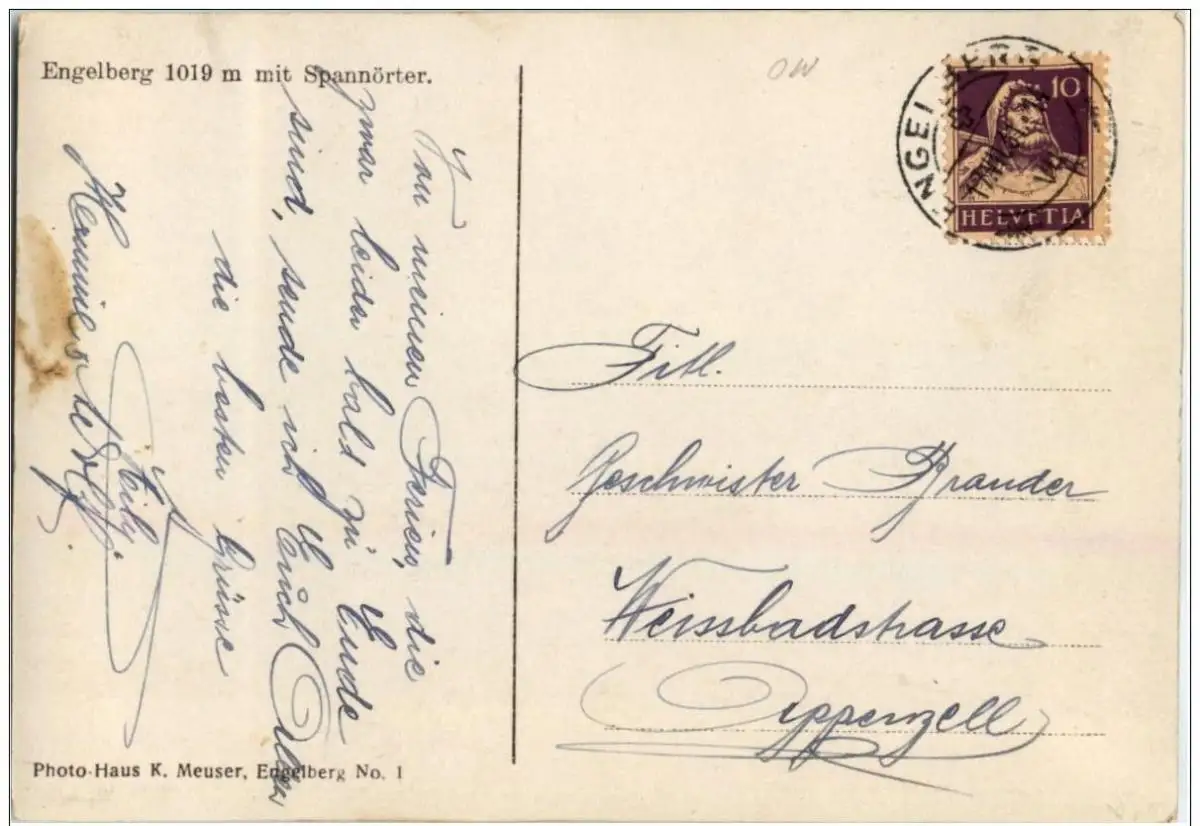 Engelberg 1019 m mit Spannörter.
Von meinen Ferien, die
zwar leider bald zu Ende
sind, sende ich Euch Allen
die besten Grüsse
Photo-Haus K. Meuser, Engelberg No. 1
OW
ENGELBERG
10
HELVETIA
Titl.
Geschwister Brander
Weissbadstrasse
Appenzell